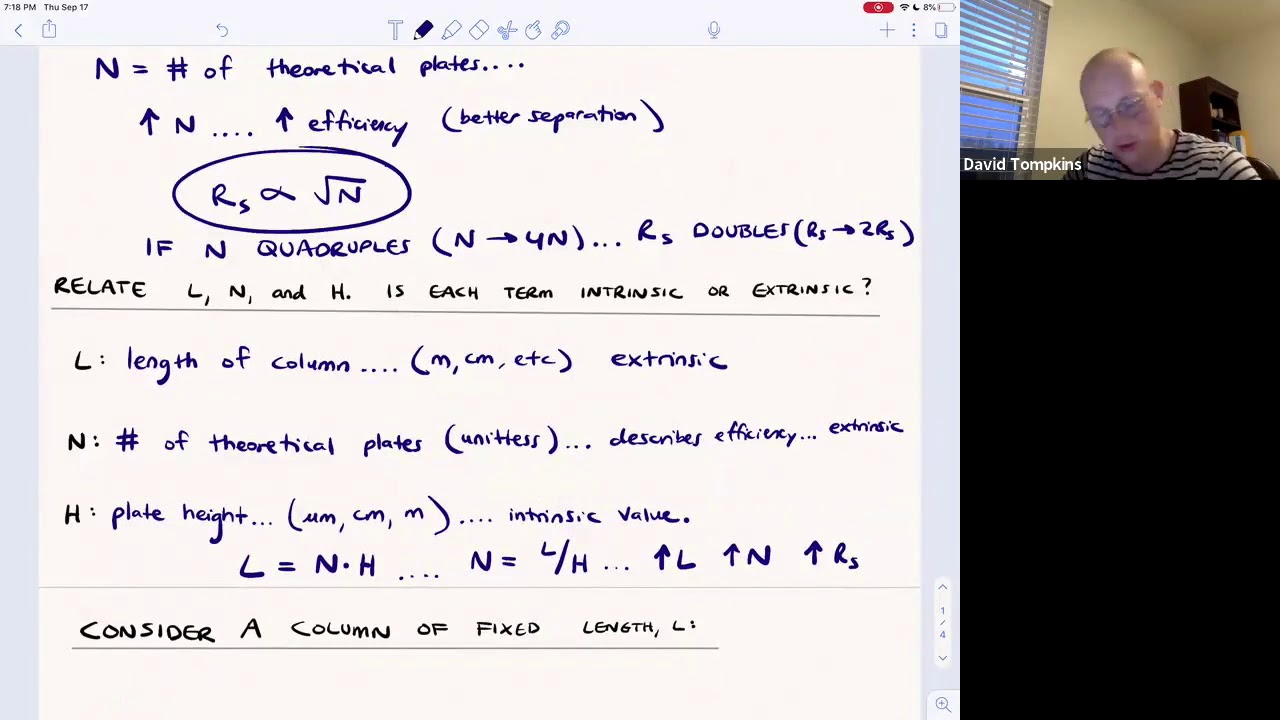 7:18 PM Thu Sep 17
8%
N = # of theoretical plates....
↑ N .... ↑ efficiency (better separation)
Rs ∝ √N
IF N QUADRUPLES (N → 4N)... Rs DOUBLES (Rs → 2Rs)
RELATE L, N, and H. IS EACH TERM INTRINSIC OR EXTRINSIC?
L: length of column .... (m, cm, etc) extrinsic
N: # of theoretical plates (unitless)... describes efficiency... extrinsic
H: plate height... (um, cm, m) .... intrinsic value.
L = N·H .... N = L/H ... ↑L ↑N ↑Rs
CONSIDER A COLUMN OF FIXED LENGTH, L:
1
/
4
David Tompkins